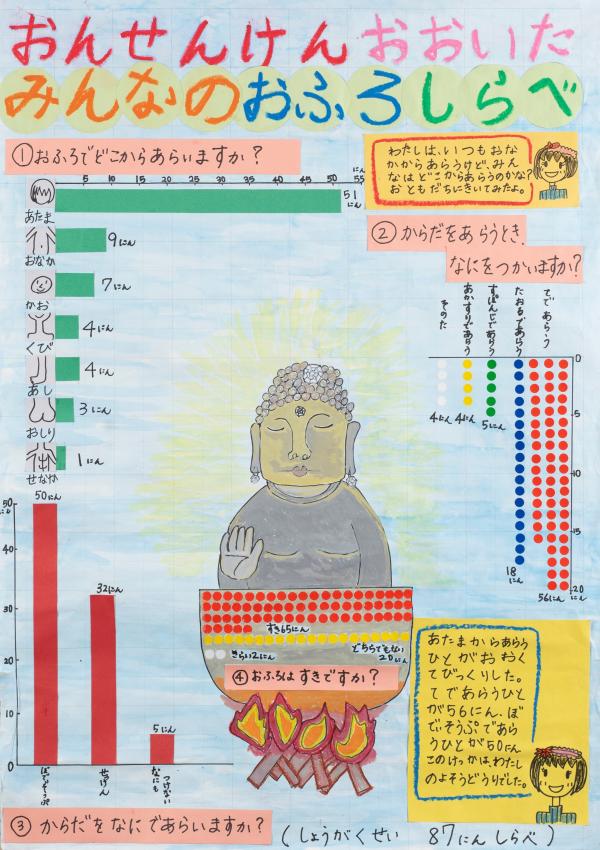 おんせんけんおおいた
みんなのおふろしらべ
①おふろでどこからあらいますか？
わたしは、いつもおな
かからあらうけど、みん
なはどこからあらうのかな？
おともだちにきいてみたよ。
5 10 15 20 25 30 35 40 45 50 55
にん
あたま 51にん
おなか 9にん
かお 7にん
くび 4にん
あし 4にん
おしり 3にん
せなか 1にん
②からだをあらうとき、
なにをつかいますか？
そのた
あかすりであらう
すぽんじであらう
たおるであらう
てであらう
0
5
10
15
20にん
4にん
4にん
5にん
18にん
56にん
50にん
40
30
20
10
0
50にん
32にん
5にん
ぼでぃそうぷ
せっけん
なにもつけない
③からだをなにであらいますか？
すき65にん
どちらでもない20にん
きらい2にん
④おふろはすきですか？
あたまからあらう
ひとがおおく
てびっくりした。
てであらうひと
が56にん、ぼ
でぃそうぷであら
うひとが50にん
このけっかは、わたし
のよそうどうりでした。
(しょうがくせい 87にんしらべ)